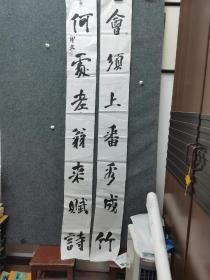 會須上番看成竹
何處老翁来賦詩